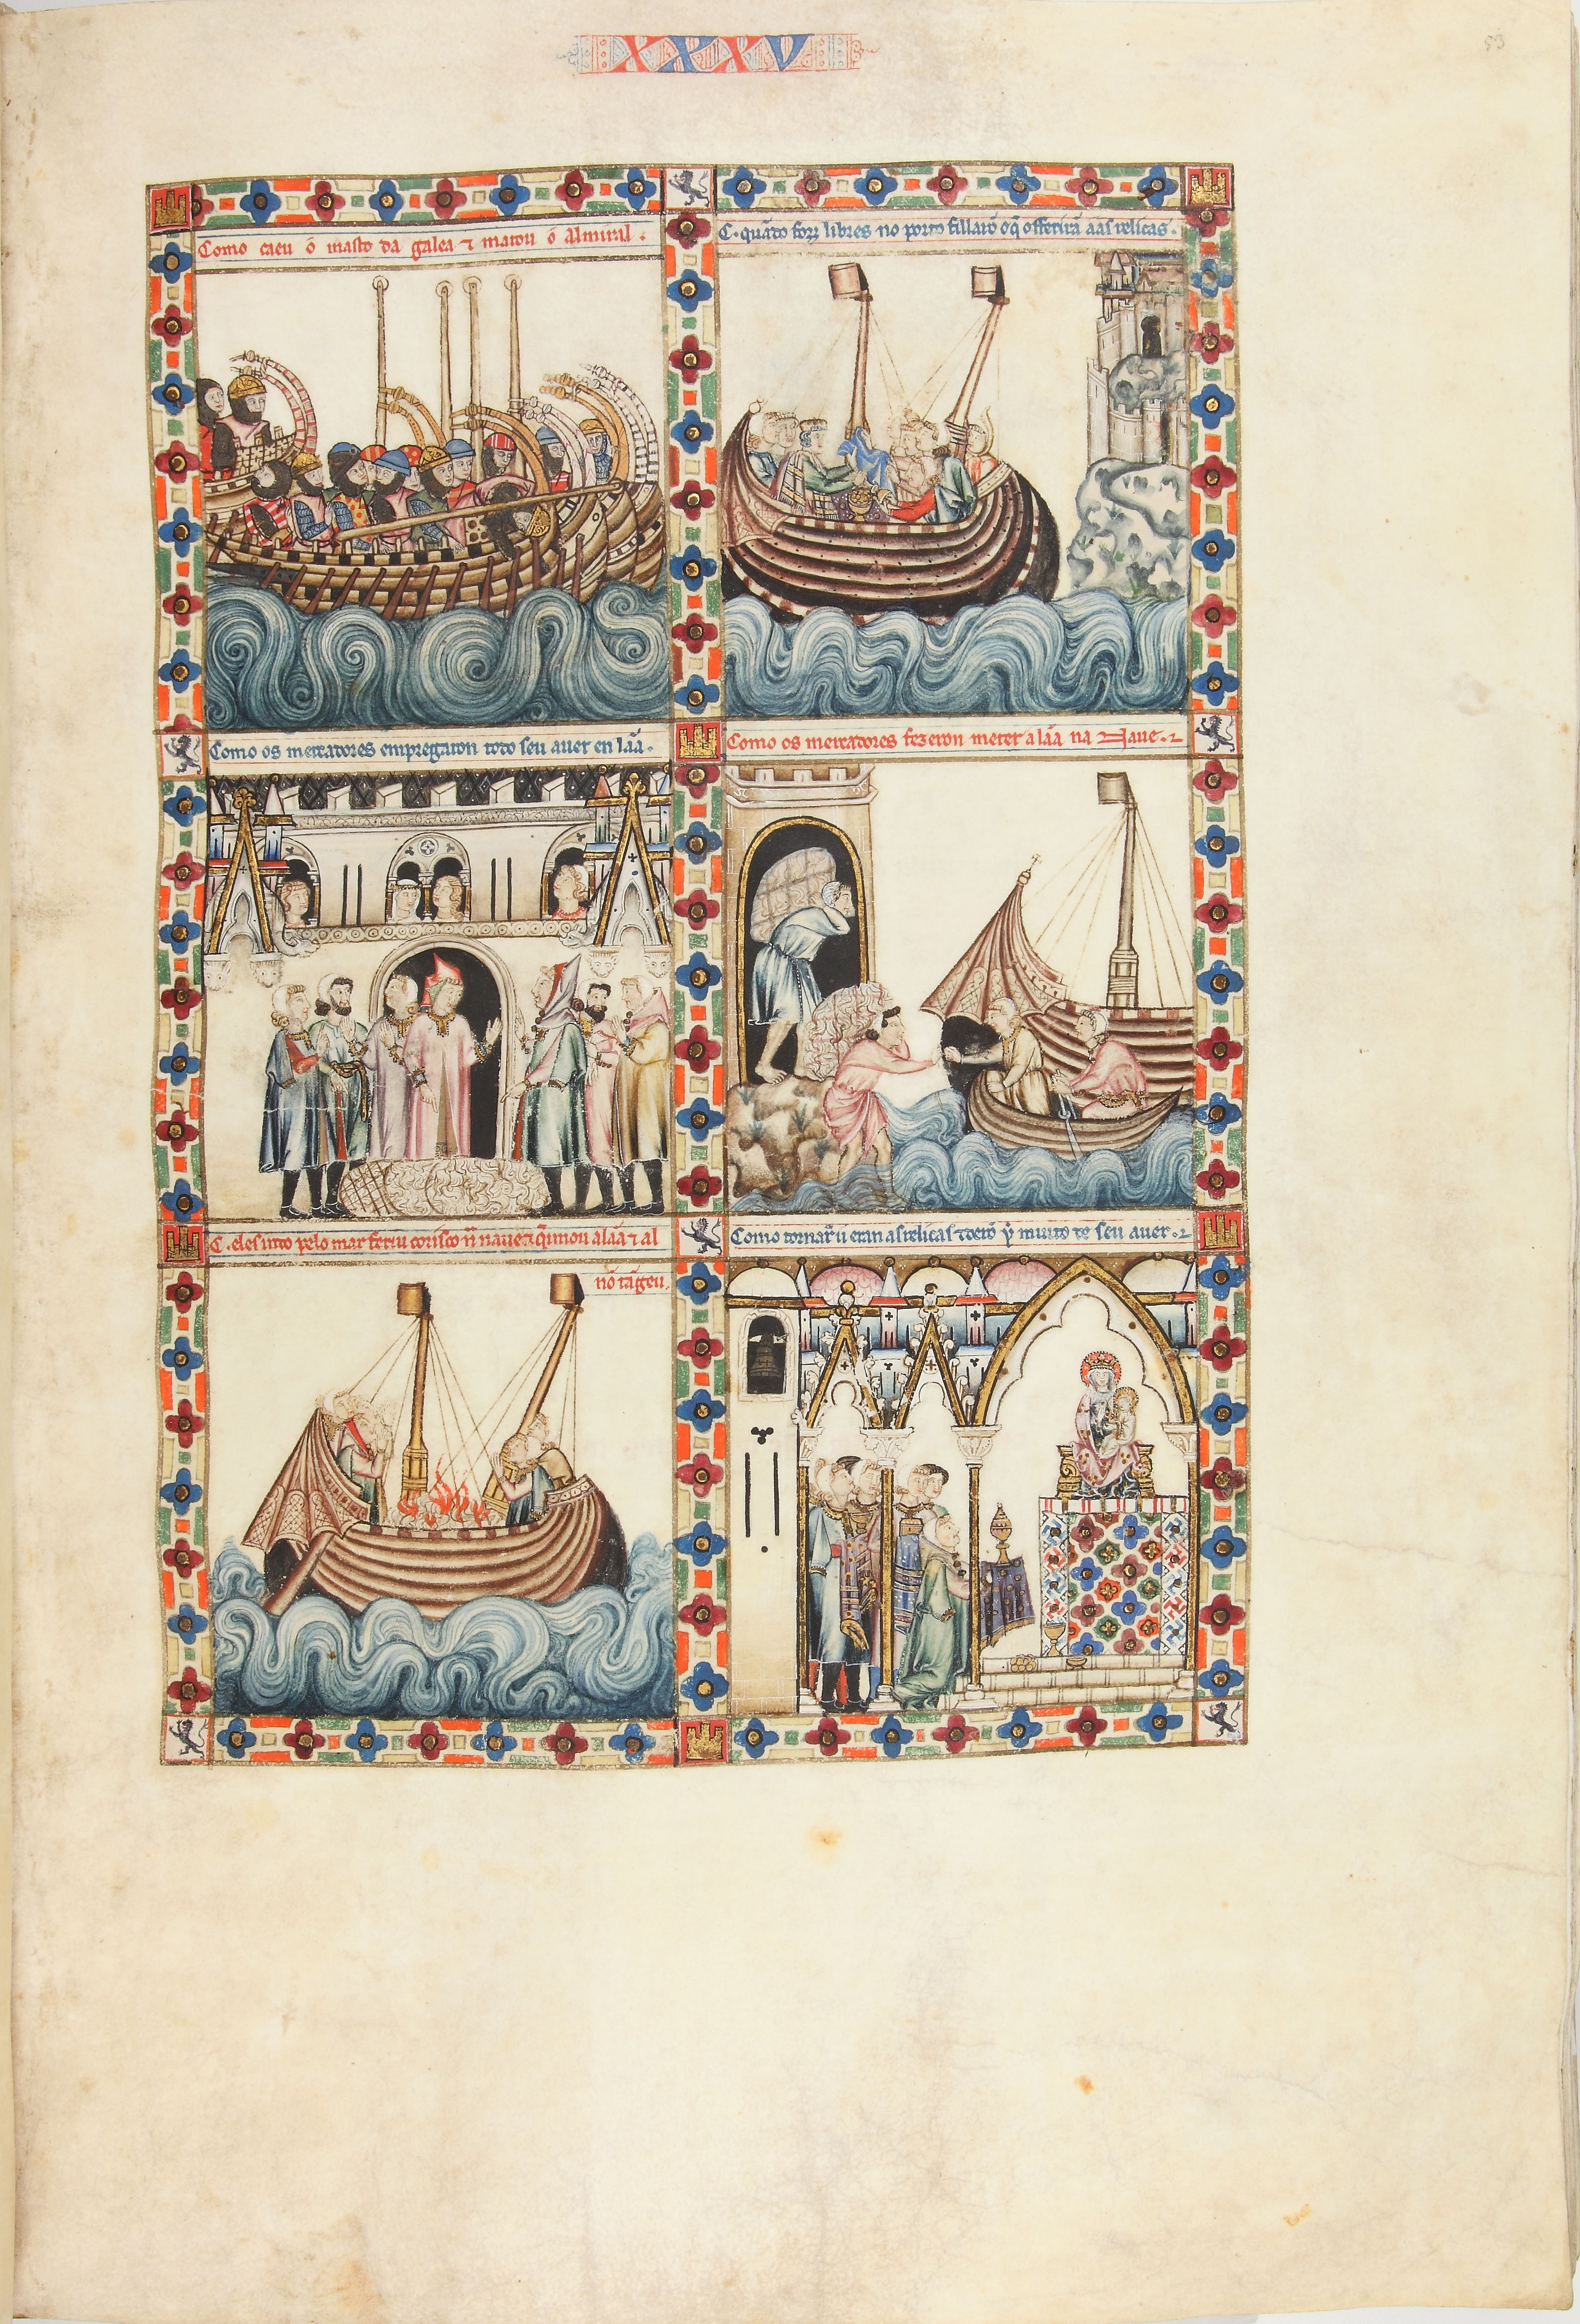 XXXV
53
Como caeu o masto da galea ⁊ matou o Almiral.
C. quãdo forõ libres no porto fillarõ o q̃ offerirã aas relicas.
Como os mercadores empregaron todo seu auer en lãa.
Como os mercadores fezeron meter a lãa na Naue.
C. eles indo pelo mar feriu corisco na naue ⁊ q̃imou a lãa ⁊ al
nõ tãgeu.
Como tornarõ u eran as relicas ⁊ derõ y muito de seu auer.